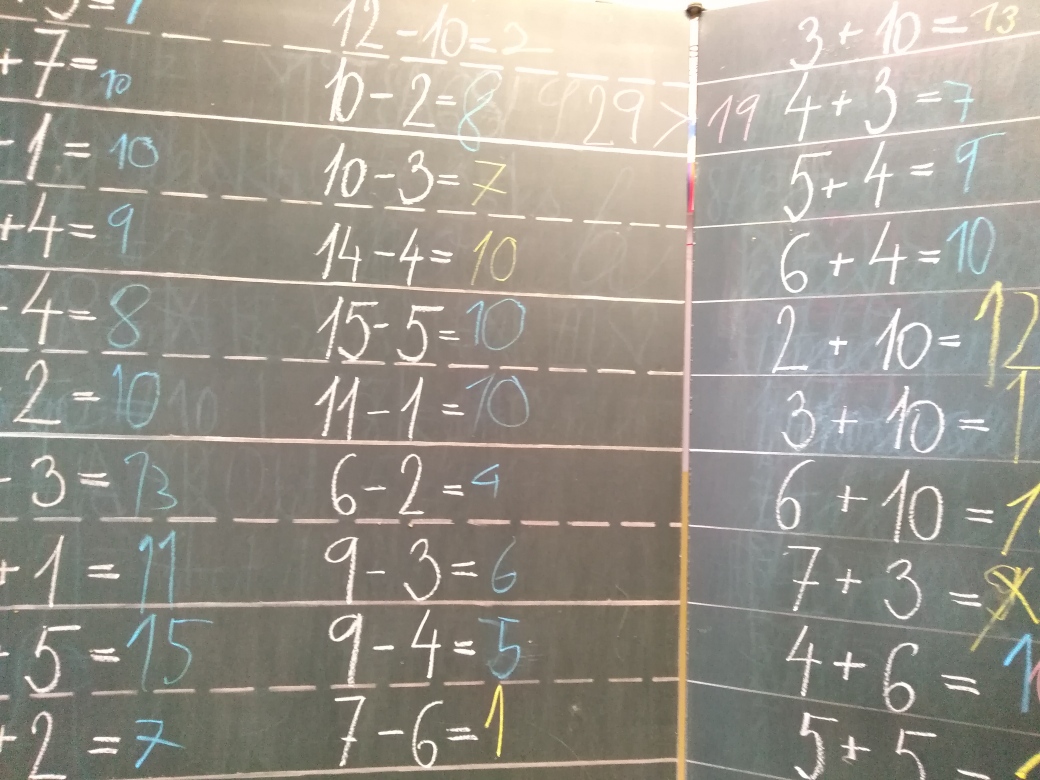 + 7 = 10
12 - 10 = 2
10 - 2 = 8
10 - 3 = 7
14 - 4 = 10
15 - 5 = 10
11 - 1 = 10
6 - 2 = 4
9 - 3 = 6
9 - 4 = 5
7 - 6 = 1
- 1 = 10
+ 4 = 9
- 4 = 8
2 = 10
- 3 = 13
+ 1 = 11
5 = 15
+ 2 = 7
29 > 19
3 + 10 = 13
4 + 3 = 7
5 + 4 = 9
6 + 4 = 10
2 + 10 = 12
3 + 10 = 1
6 + 10 = 1
7 + 3 =
4 + 6 = 1
5 + 5 =